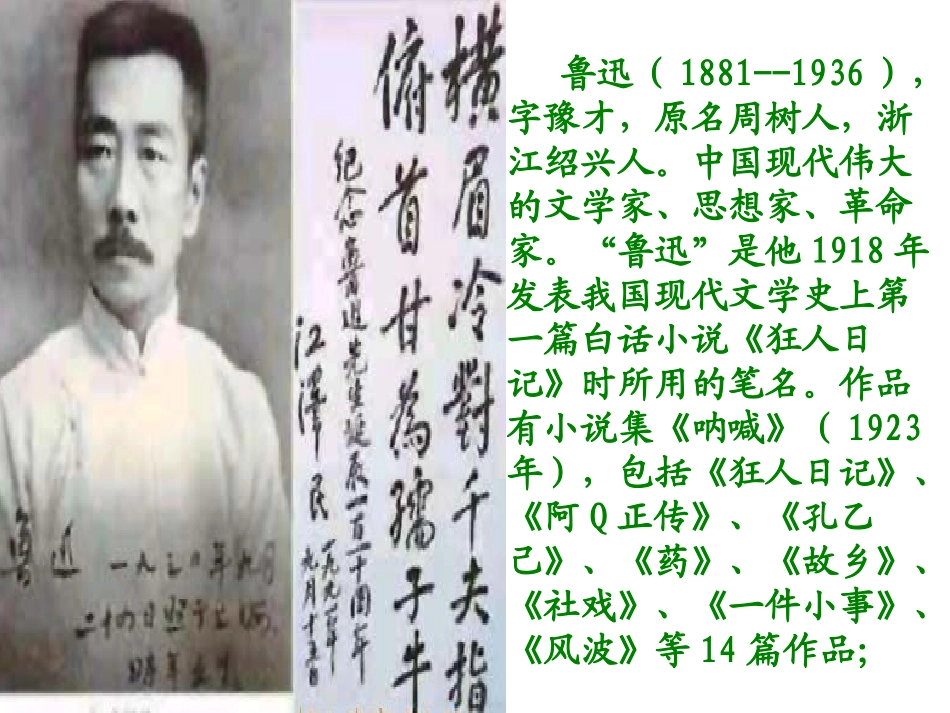 鲁迅
一九三〇年九月
二十四日照于上海
时年五十
横眉冷對千夫指
俯首甘為孺子牛
纪念鲁迅先生诞辰一百一十周年
江澤民
一九九一年
九月十五日
鲁迅( 1881--1936 ),
字豫才，原名周树人，浙
江绍兴人。中国现代伟大
的文学家、思想家、革命
家。“鲁迅”是他 1918 年
发表我国现代文学史上第
一篇白话小说《狂人日
记》时所用的笔名。作品
有小说集《呐喊》( 1923
年)，包括《狂人日记》、
《阿 Q 正传》、《孔乙
己》、《药》、《故乡》、
《社戏》、《一件小事》、
《风波》等 14 篇作品;